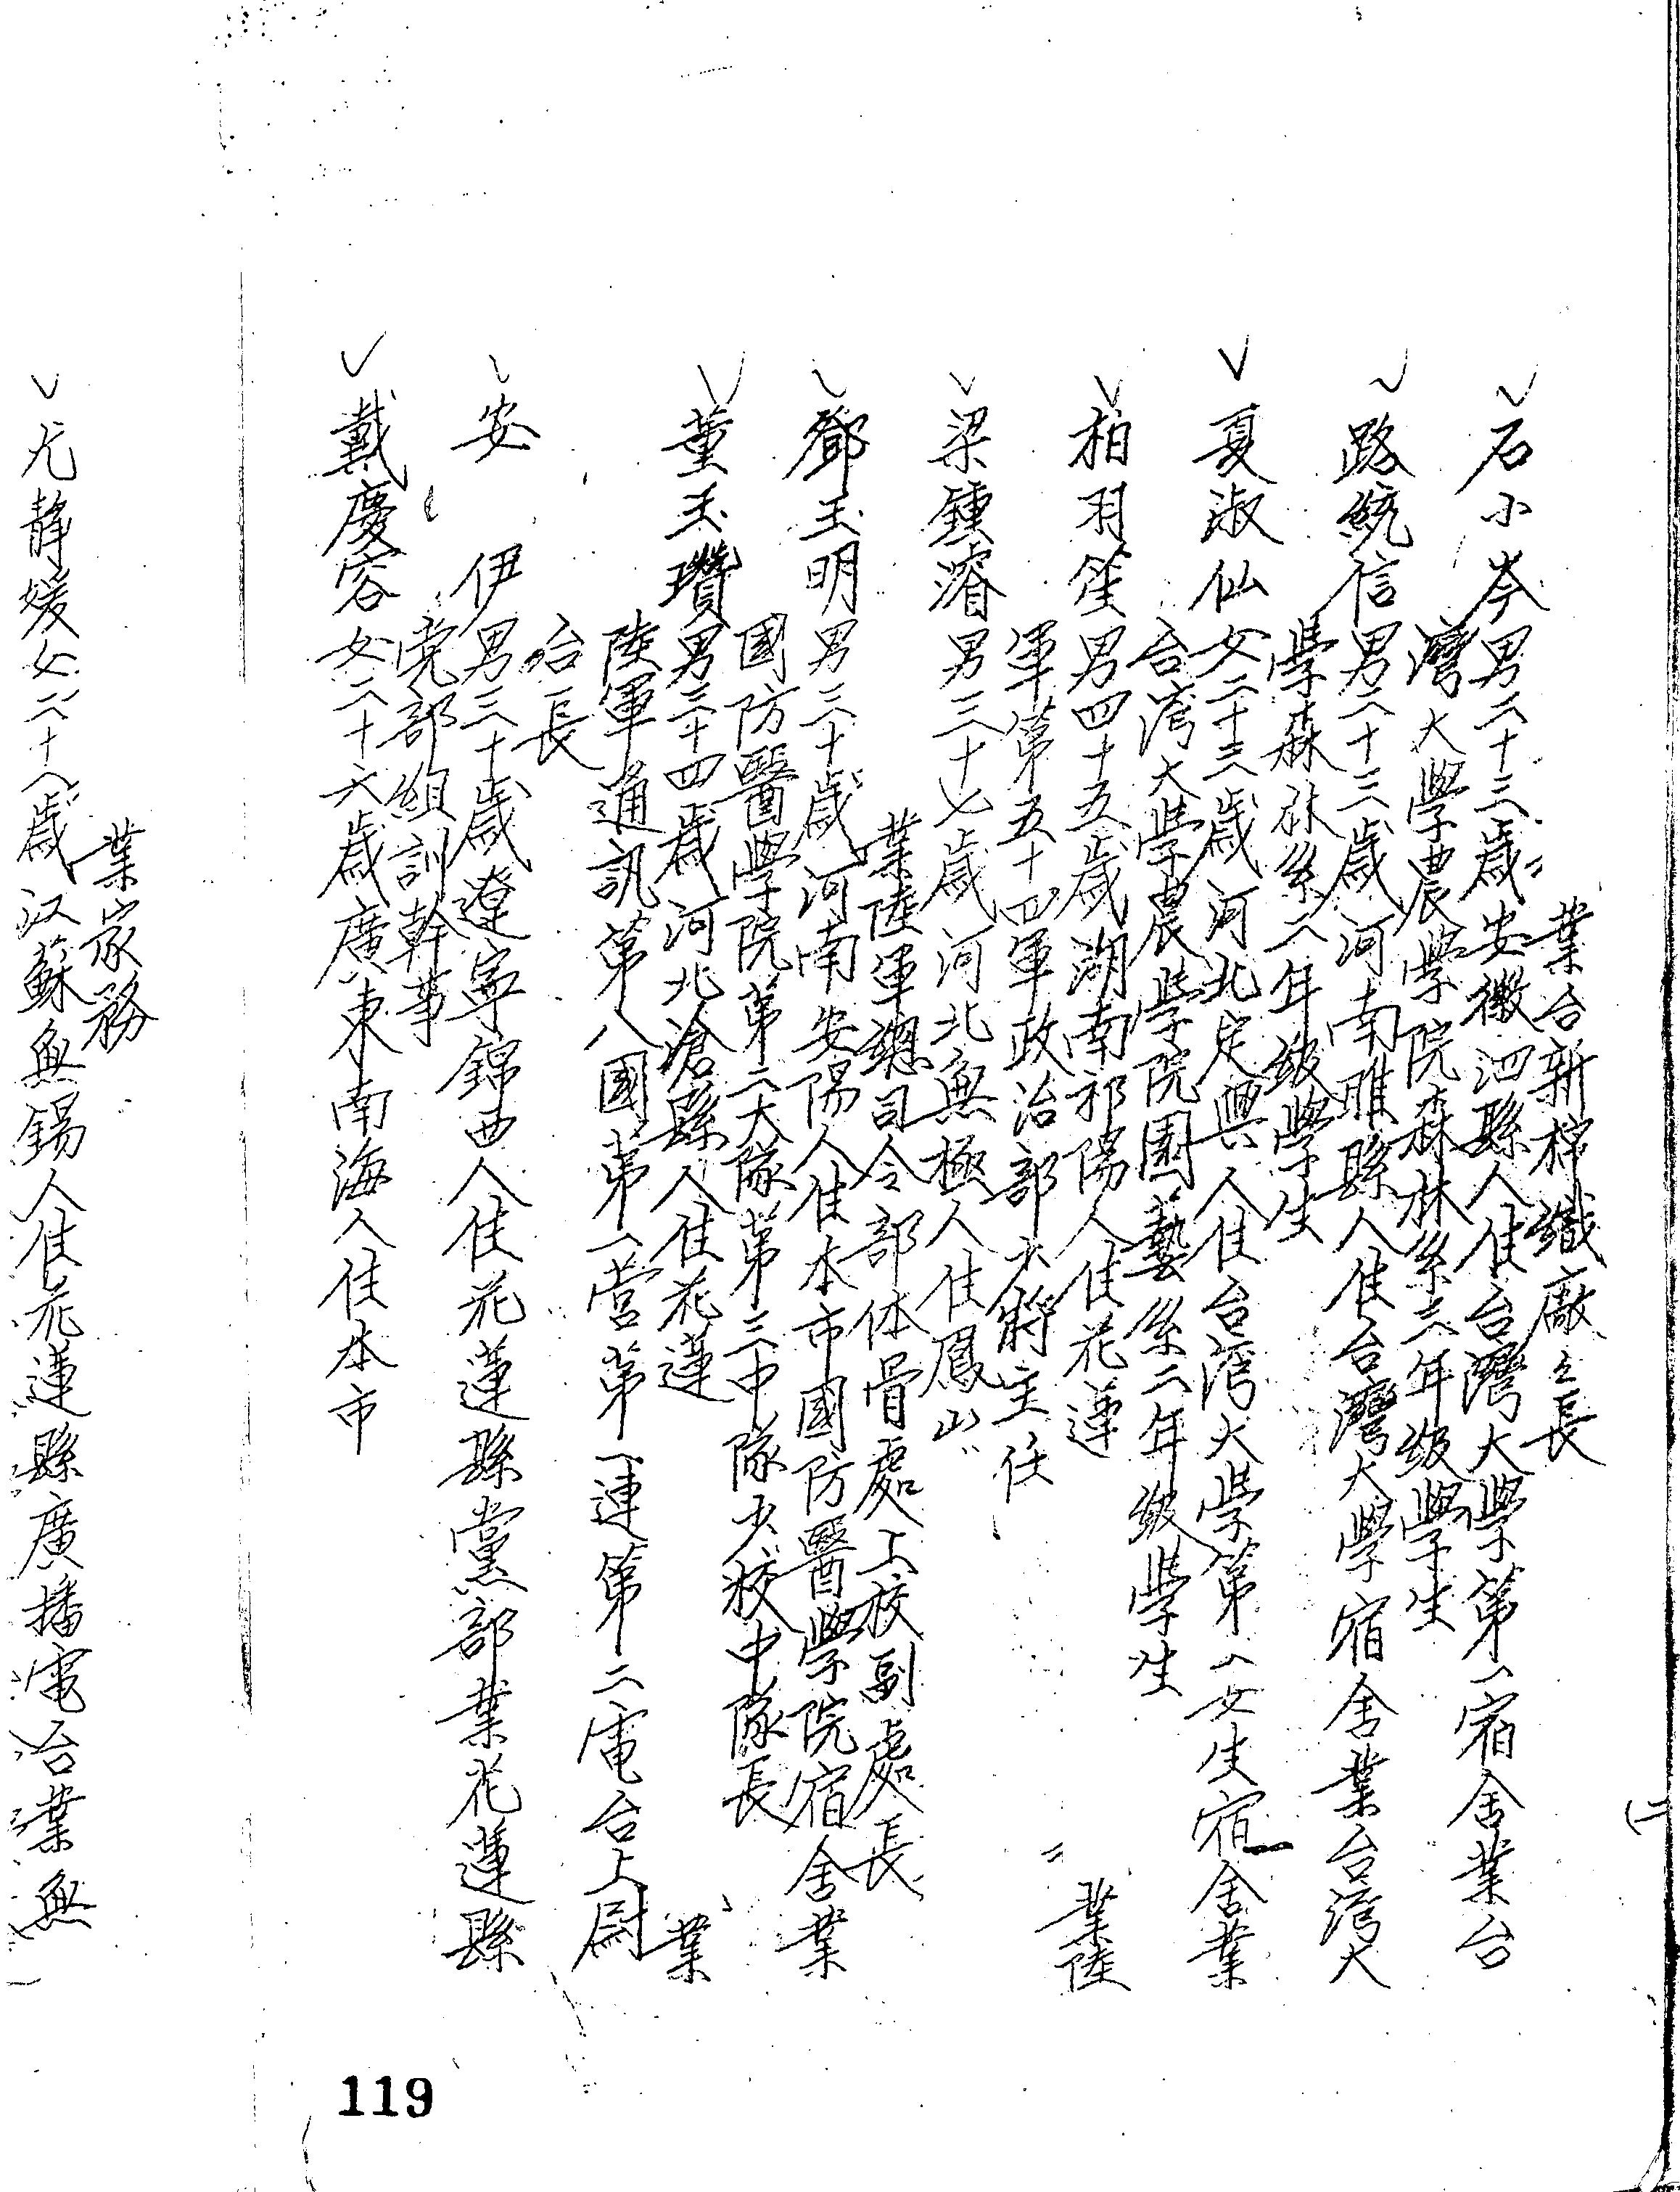 業台新棉織廠廠長
石小岑男二十三歲安徽泗縣人住台灣大學第一宿舍業台
灣大學農學院森林系三年級學生
路統信男二十三歲河南睢縣人住台灣大學宿舍業台灣大
學森林系二年級學生
夏淑仙女二十三歲河北定興人住台灣大學第一女生宿舍業
台灣大學農學院園藝系二年級學生
柏羽笙男四十五歲湖南祁陽人住花蓮業陸
軍第五十四軍政治部少將主任
梁鍾濬男三十七歲河北無極人住鳳山
業陸軍總司令部体骨處上校副處長
鄧玉明男三十歲河南安陽人住本市國防醫學院宿舍業
國防醫學院第二大隊第三中隊少校中隊長
董玉瓚男三十四歲河北滄縣人住花蓮業
陸軍通訊第八團第一營第一連第二電台上尉
台長
安伊男三十歲遼寧錦西人住花蓮縣黨部業花蓮縣
党部組訓幹事
戴慶容女二十六歲廣東南海人住本市
業家務
尤靜媛女二十八歲江蘇無錫人住花蓮縣廣播電台業無
119